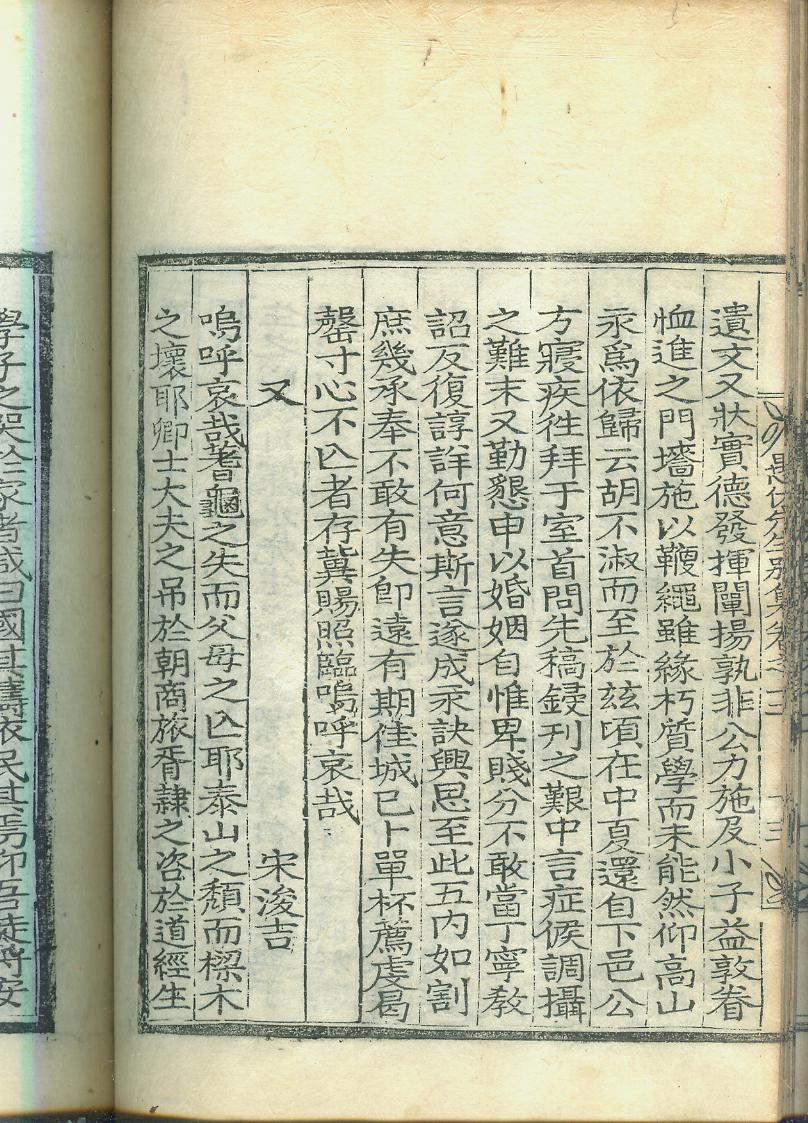 愚伏先生別集卷之
遺文又狀實德發揮闡揚孰非公力施及小子益敦眷
恤進之門墻施以鞭繩雖緣朽質學而未能然仰高山
永爲依歸云胡不淑而至於玆頃在中夏還自下邑公
方寢疾徃拜于室首問先稿鋟刊之艱中言症候調攝
之難末又勤懇申以婚姻自惟卑賤分不敢當丁寧敎
詔反復諄詳何意斯言遂成永訣興思至此五内如割
庶幾承奉不敢有失卽遠有期佳城已卜單杯薦虔曷
罄寸心不亾者存冀賜照臨嗚呼哀哉
又
宋浚吉
嗚呼哀哉蓍龜之失而父母之亾耶泰山之頹而樑木
之壞耶卿士大夫之吊於朝商旅胥隷之咨於道經生
學子之哭於家者咸曰國其疇依民其焉仰吾徒將安